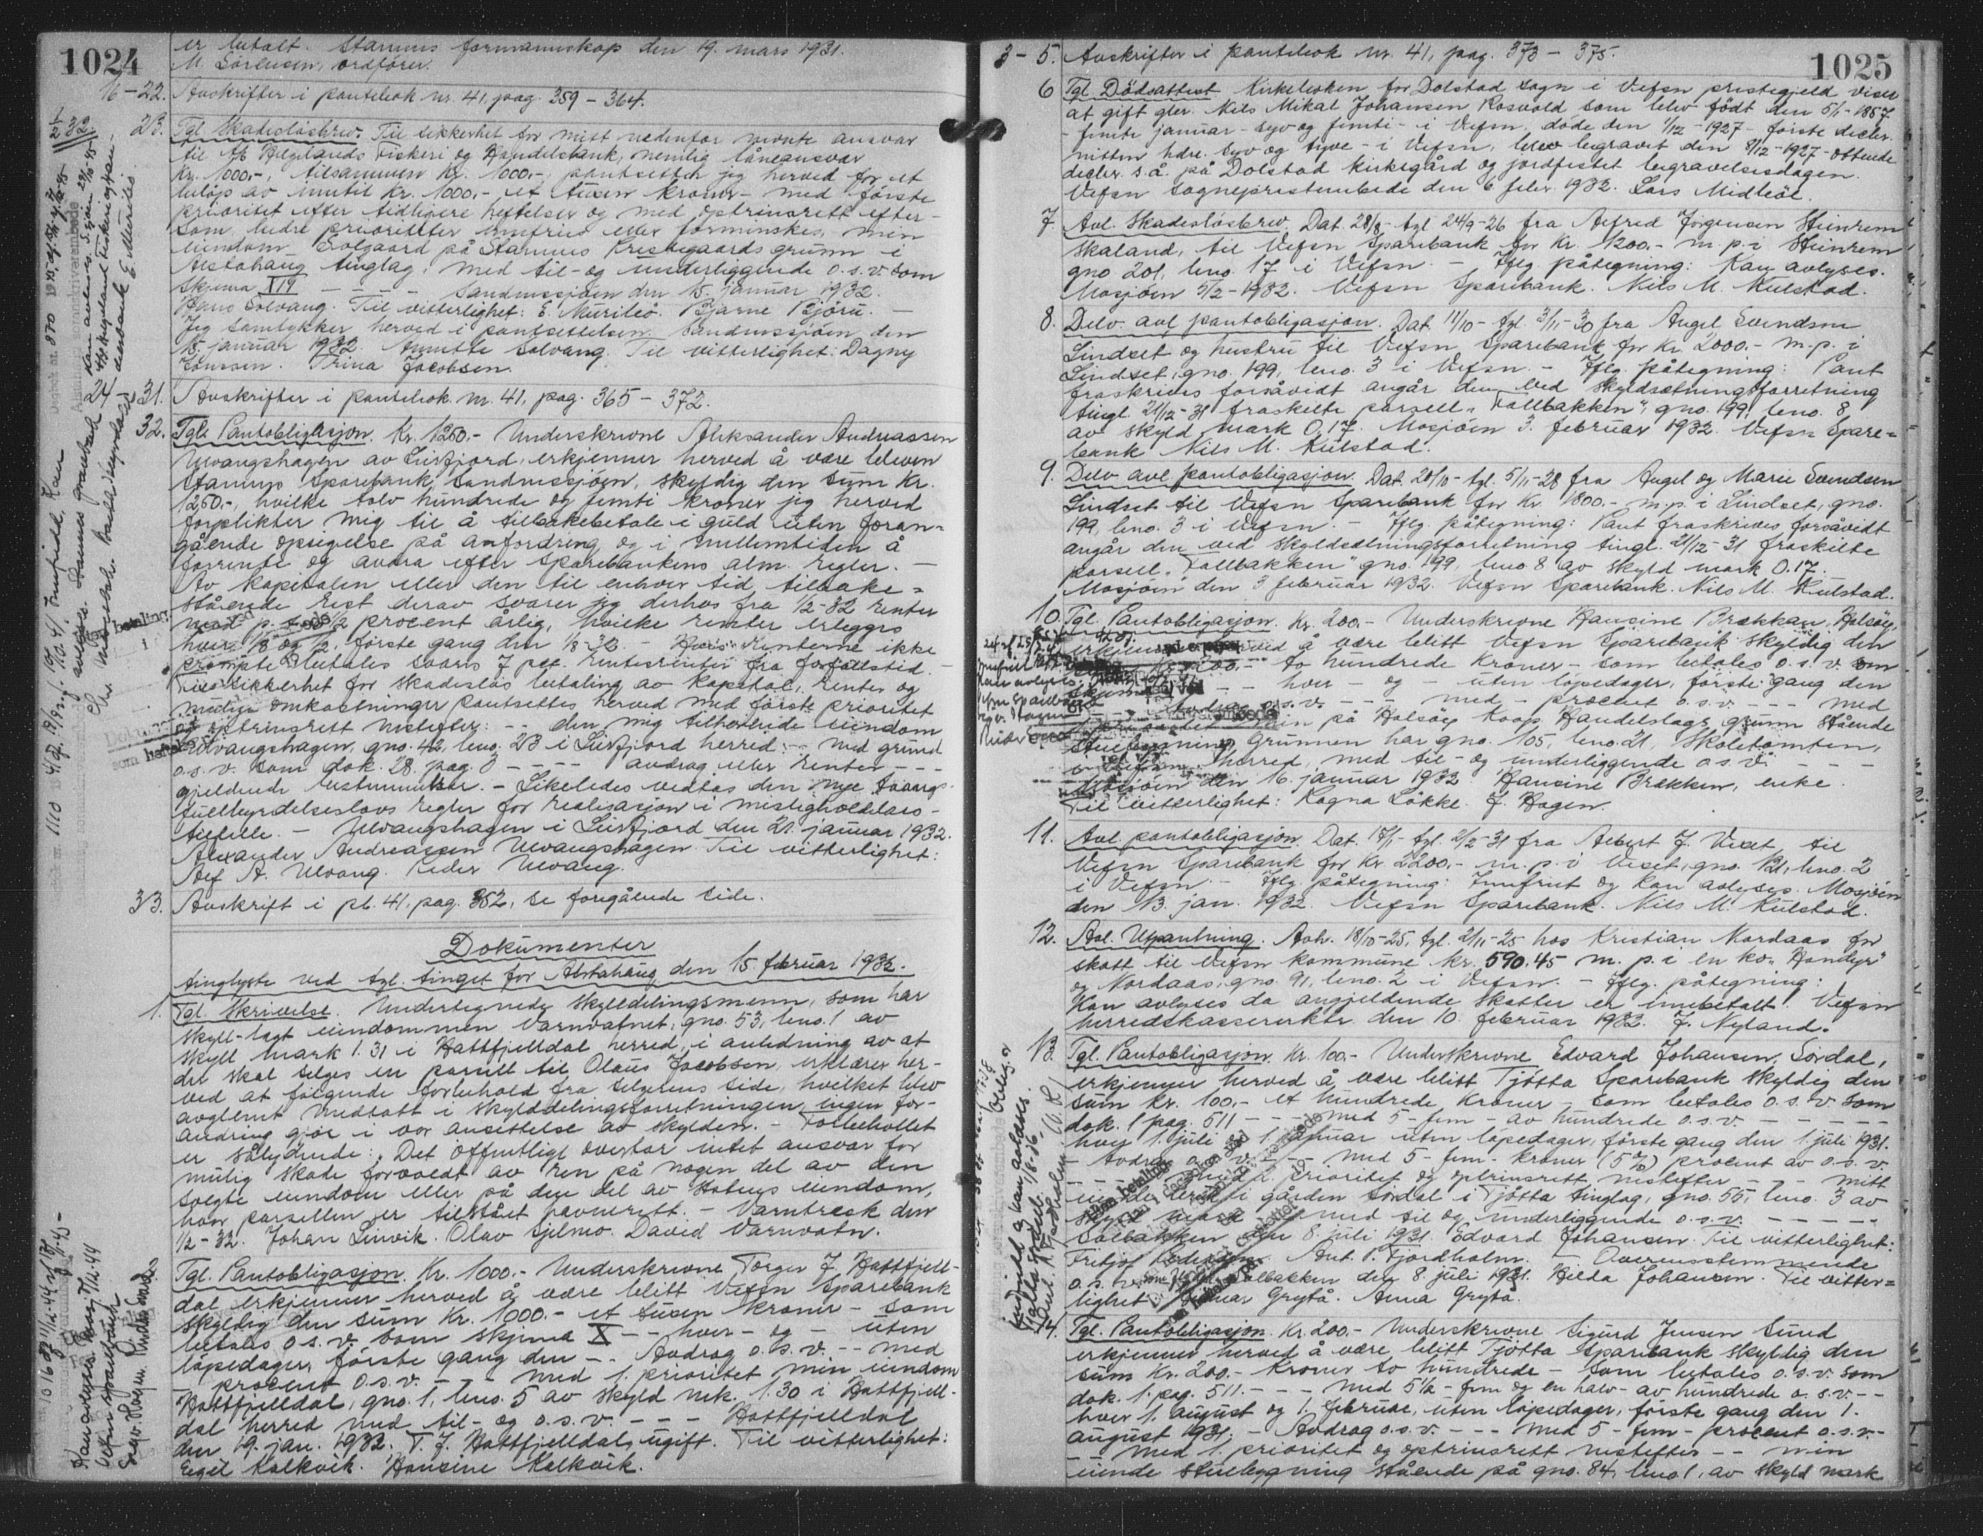 1024
er betalt. Stamnes formannskap den 19. mars 1931.
M. Sörensen, ordförer.
16-22. Avskrifter i pantebok nr. 41, pag. 359 - 364.
23. Tgl. Skadeslösbrev. Til sikkerhet for mitt nedenfor nevnte ansvar
til A/S Helgelands Fiskeri og Handelsbank, nemlig låneansvar
Kr. 1000,-, tilsammen Kr. 1000,- pantsetter jeg herved for et
belöp av inntil Kr. 1000,- et tusen kroner - med förste
prioritet efter tidligere heftelser og med optrinsrett efter-
som bedre prioriteter innfries eller forminskes, min
eiendom Solgaard på Stamnes Prestegaards grunn i
Alstahaug tinglag, med til- og underliggende o.s.v. som
skjema XIV - - - - Sandnessjöen den 15. januar 1932.
Hans Solvang. Til vitterlighet: E. Murilev. Bjarne Björu. -
Jeg samtykker herved i pantsettelsen. Sandnessjöen den
15. januar 1932. Annette Solvang. Til vitterlighet: Dagny
Jönssen. Trina Jacobsen.
24-31. Avskrifter i pantebok nr. 41, pag. 365 - 372.
32. Tgl. Pantobligasjon. Kr. 1250.- Underskrevne Aleksander Andreassen
Ulvangshagen av Leirfjord, erkjenner herved å være bleven
Stamnes Sparebank, Sandnessjöen, skyldig den sum Kr.
1250.-, hvilke tolv hundrede og femti kroner jeg herved
forplikter mig til å tilbakebetale i guld uten foran-
gående opsigelse på anfordring og i mellemtiden å
forrente og avdra efter Sparebankens alm. regler. -
Av kapitalen eller den til enhver tid tilbake-
stående rest derav svarer jeg derhos fra 1/2-32 renter
med p. t. 6 1/2 procent årlig, hvilke renter erlegges
hver 1/8 og 1/2, förste gang den 1/8-32. - Hvis renterne ikke
prompte betales svares 7 pct. rentesrenter fra forfallstid. -
Til sikkerhet for skadeslös betaling av kapital, renter og
mulige omkostninger pantsettes herved med förste prioritet
og optrinsrett nestefter: - - den mig tilhörende eiendom
Ulvangshagen, gno. 42, bno. 23 i Leirfjord herred: - med grund
o.s.v. som dok. 28. pag. 3 - - - - avdrag eller renter - - -
gjeldende bestemmelser. - Likeledes vedtas den nye tvangs-
fuldbyrdelseslovs regler for realisasjon i misligholdelses-
tilfelle. - Ulvangshagen i Leirfjord den 21. januar 1932.
Alexander Andreassen Ulvangshagen. Til vitterlighet:
Alf A. Ulvang. Peder Ulvang.
33. Avskrift i pb. 41, pag. 352, se foregående side.
Dokumenter
tinglyste ved tgl. tinget for Alstahaug den 15. februar 1932.
1. Tgl. Skrivelse. Undertegnede skylddelingsmenn, som har
skyll-lagt eiendommen Varnvatnet, gno. 53, bno. 1 av
skyll mark 1.31 i Hattfjelldal herred, i anledning av at
det skal selges en parsell til Olaus Jacobsen, erklærer her-
ved at fölgende forbehold fra selgerens side, hvilket blev
avglemt innfatt i skylddelingsforretningen, ingen for-
andring gjör i vor ansettelse av skylden. - Forbeholdet
er sålydende: Det offentlige overtar intet ansvar for
mulig skade forvoldt av ren på nogen del av den
solgte eiendom eller på den del av Statens eiendom,
hvor parsellen er tilstået havnerett. - Varntresk den
1/2-32. Johan Linvik. Olav Sjelmo. David Varnvatn.
Tgl. Pantobligasjon. Kr. 1000.- Underskrevne Torger J. Hattfjell-
dal erkjenner herved å være blitt Vefsn Sparebank
skyldig den sum Kr. 1000.- et tusen kroner - som
betales o.s.v. som skjema X - - hver - og - uten
löpedager, förste gang den - - Avdrag o.s.v. - - med
- procent o.s.v. - - med 1. prioritet min eiendom
Hattfjelldal, gno. 1, bno. 5 av skyld mk. 1.30 i Hattfjell-
dal herred med til- og o.s.v. - - - Hattfjelldal
den 19. jan. 1932. T. J. Hattfjelldal, ugift. Til vitterlighet:
Egil Kalkvik. Hansine Kalkvik.
1025
3-5. Avskrifter i pantebok nr. 41, pag. 373 - 375.
6 Tgl. Dödsattest. Kirkeboken for Dolstad sogn i Vefsn prestegjeld viser
at gift gbr. Nils Mikal Johansen Rosvold som blev født den 5/1-1857
- femte januar - syv og femti - i Vefsn, döde den 1/12-1927 - förste decbr.
nitten hdre. syv og tyve - i Vefsn, blev begravet den 8/12-1927 - ottende
decbr. s.å. på Dolstad kirkegård og jordfestet begravelsesdagen.
Vefsn sogneprestembede den 6 febr. 1932. Lars Midtböe.
7 Avl. Skadeslösbrev. Dat. 28/8- tgl. 24/9-26 fra Alfred Jörgensen Steinrem
Skaland, til Vefsn Sparebank for kr. 1200.- m.p. i Steinrem
gno 201, bno. 17 i Vefsn. - Iflg. påtegning: Kan avlyses.
Mosjöen 5/2-1932. Vefsn Sparebank. Nils M. Kulstad.
8. Delv. avl. pantobligasjon. Dat. 11/10- tgl. 3/11-30 fra Angel Svendsen
Lindset og hustru til Vefsn Sparebank for kr. 2000.- m.p. i
Lindset, gno. 199, bno. 3 i Vefsn. - Iflg. påtegning: Pant
fraskrives forsåvidt angår den ved skyldsetningsforretning
tingl. 21/12-31 fraskilte parsell „Tollbakken", gno. 199, bno. 8
av skyld mark 0.17. Mosjöen 3. februar 1932. Vefsn Spare-
bank Nils M. Kulstad.
9. Delv. avl. pantobligasjon. Dat. 20/10- tgl. 5/11-28 fra Angel og Marie Svendsen
Lindset til Vefsn Sparebank for kr. 1800.- m.p. i Lindset, gno.
199, bno. 3 i Vefsn. - Iflg. påtegning: Pant fraskrives forsåvidt
angår den ved skyldsetningsforretning tingl. 21/12-31 fraskilte
parsell „Tollbakken" gno. 199, bno 8 av skyld mark 0.17.
Mosjöen den 3 februar 1932. Vefsn Sparebank. Nils M. Kulstad.
10. Tgl. Pantobligasjon. Kr. 200.- Underskrevne Hansine Brækkan, Halsöy,
erkjenner herved å være blitt Vefsn Sparebank skyldig den
sum kr. 200.- to hundrede kroner - som betales o.s.v. som
skjema - - - hver - og - uten löpedager, förste gang den
- - Avdrag o.s.v. - - med - procent o.s.v. - - med
på Halsöy Koop. Handelslags grunn stående
stuebygning. Grunnen har gno. 105, bno. 21, Skoletomten,
i Vefsn herred, med til- og underliggende o.s.v. - - - -
Mosjöen den 16. januar 1932 Hansine Brækkan, enke.
Til vitterlighet: Ragna Lökke. J. Hagen.
11. Avl. pantobligasjon. Dat. 17/1- tgl. 2/2-31 fra Albert J. Veset, til
Vefsn Sparebank for kr. 2200.- m.p. i Veset, gno. 121, bno. 2
i Vefsn. - Iflg. påtegning: Innfriet og kan avlyses. Mosjöen
den 13. jan. 1932. Vefsn Sparebank. Nils M. Kulstad.
12. Avl. Utpantning. Avh. 18/10-25, tgl. 2/11-25 hos Kristian Nordaas for
skatt til Vefsn kommune kr. 590.45 m.p. i en ko „Handlyr"
og Nordaas, gno. 91, bno. 2 i Vefsn. - Iflg. påtegning:
Kan avlyses da angjeldende skatter er innbetalt. Vefsn
herredskassererktr. den 10. februar 1932. J. Nyland.
13. Tgl. Pantobligasjon. Kr. 100.- Underskrevne Edvard Johansen, Sördal,
erkjenner herved å være blitt Tjötta Sparebank skyldig den
sum kr. 100.- et hundrede kroner - som betales o.s.v. som
dok. 1 pag. 511 - - - - med 5 - fem - av hundrede o.s.v. - - - -
hver 1. juli og 1. januar uten löpedager, förste gang den 1. juli 1931.
- Avdrag o.s.v. - - - med 5 - fem - kroner (5 %) procent av o.s.v.
- - - med 1. prioritet og optrinsrett nestefter - - mitt
gården Sördal i Tjötta tinglag, gno. 55, bno. 3 av
skyld mark med til og underliggende o.s.v. - - - - -
Solbakken den 8. juli 1931. Edvard Johansen. Til vitterlighet:
Fritjof Pedersen. Ant. P. Fjordholm. - Overensstemmende
o.s.v. Solbakken den 8. juli 1931. Hilda Johansen. Til vitter-
lighet Grytå. Anna Grytå.
14. Tgl. Pantobligasjon. Kr. 200.- Underskrevne Sigurd Jensen Sund
erkjenner herved å være blitt Tjötta Sparebank skyldig den
sum Kr. 200.- kroner to hundrede - som betales o.s.v. som
dok. 1. pag. 511.- - - - med 5 1/2 - fem og en halv - av hundrede o.s.v. - -
hver 1. august og 1. februar, uten löpedager, förste gang den 1.
august 1931. - Avdrag o.s.v. - - - med 5 - fem - procent o.s.v. -
- - med 1. prioritet og optrinsrett nestefter - - min
eiende stuebygning stående på gno. 84, bno 1, av skyld mark